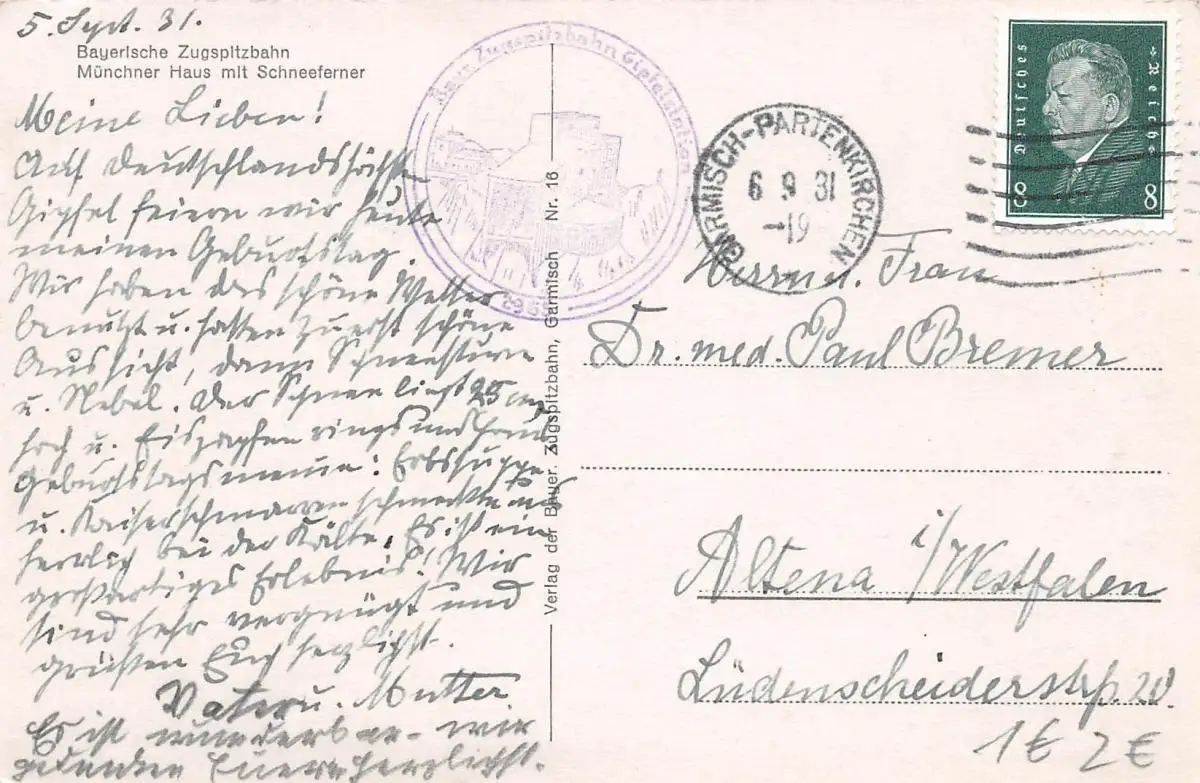 5. Sept. 31.
Bayerische Zugspitzbahn
Münchner Haus mit Schneeferner
Meine Lieben!
Auf Deutschlands höchst
Gipfel feiern wir heute
meinen Geburtstag.
Wir haben das schöne Wetter
benutzt u. hatten zuerst schöne
Aussicht, dann Schneesturm
u. Nebel. Der Schnee liegt 25 cm
hoch u. Eiszapfen rings ums Haus
Geburtstagsmenue: Erbssuppe
u. Kaiserschmarren schmeckte uns
herrlich bei der Kälte. Es ist ein
großartiges Erlebnis! Wir
sind sehr vergnügt und
grüßen Euch herzlichst.
Vater u. Mutter
Es ist wunderbar – wir
gedenken Eurer herzlichst.
Bayer. Zugspitzbahn Gipfelstation
2966
Verlag der Bayer. Zugspitzbahn, Garmisch Nr. 16
GARMISCH-PARTENKIRCHEN
6 9 31
-19
Deutsches Reich
8 8
Herrn u. Frau
Dr. med. Paul Bremer
Altena i/Westfalen
Lüdenscheiderstr. 20.
1€ 2€